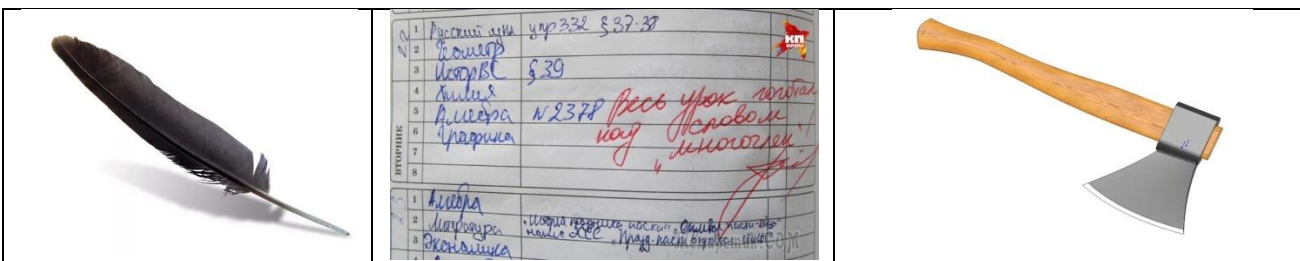 1 Русский язык упр 332 § 37-38
2 Геометр
3 ИсторВС § 39
4 Химия
5 Алгебра N 2378
6 Графика
7
8
ВТОРНИК
Весь урок гоготал
над словом
"многочлен"!
КП
1 Алгебра
2 Литература
3 Экономика